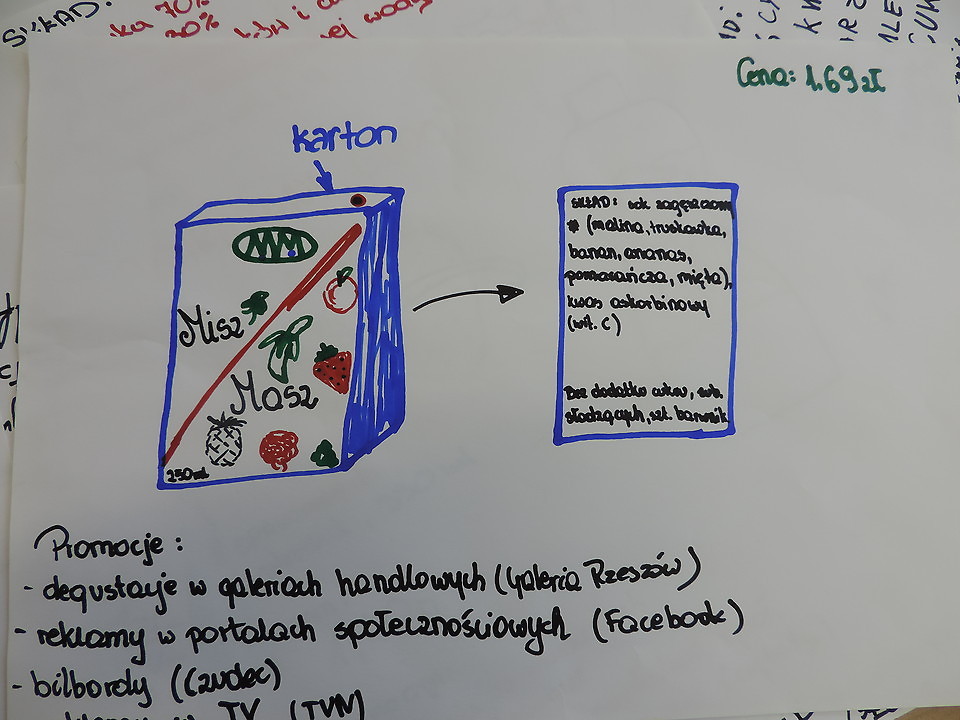 SKŁAD:
70%
Cena: 1.69 zł
karton
MM
Misz
Masz
250ml
SKŁAD: sok zagęszczony
(malina, truskawka,
banan, ananas,
pomarańcza, mięta),
kwas askorbinowy
(wit. C)
Bez dodatku cukru, sub.
słodzących, szt. barwnik
Promocje:
- degustacje w galeriach handlowych (Galeria Rzeszów)
- reklamy w portalach społecznościowych (Facebook)
- bilbordy (Czudec)
w TV (TVM)